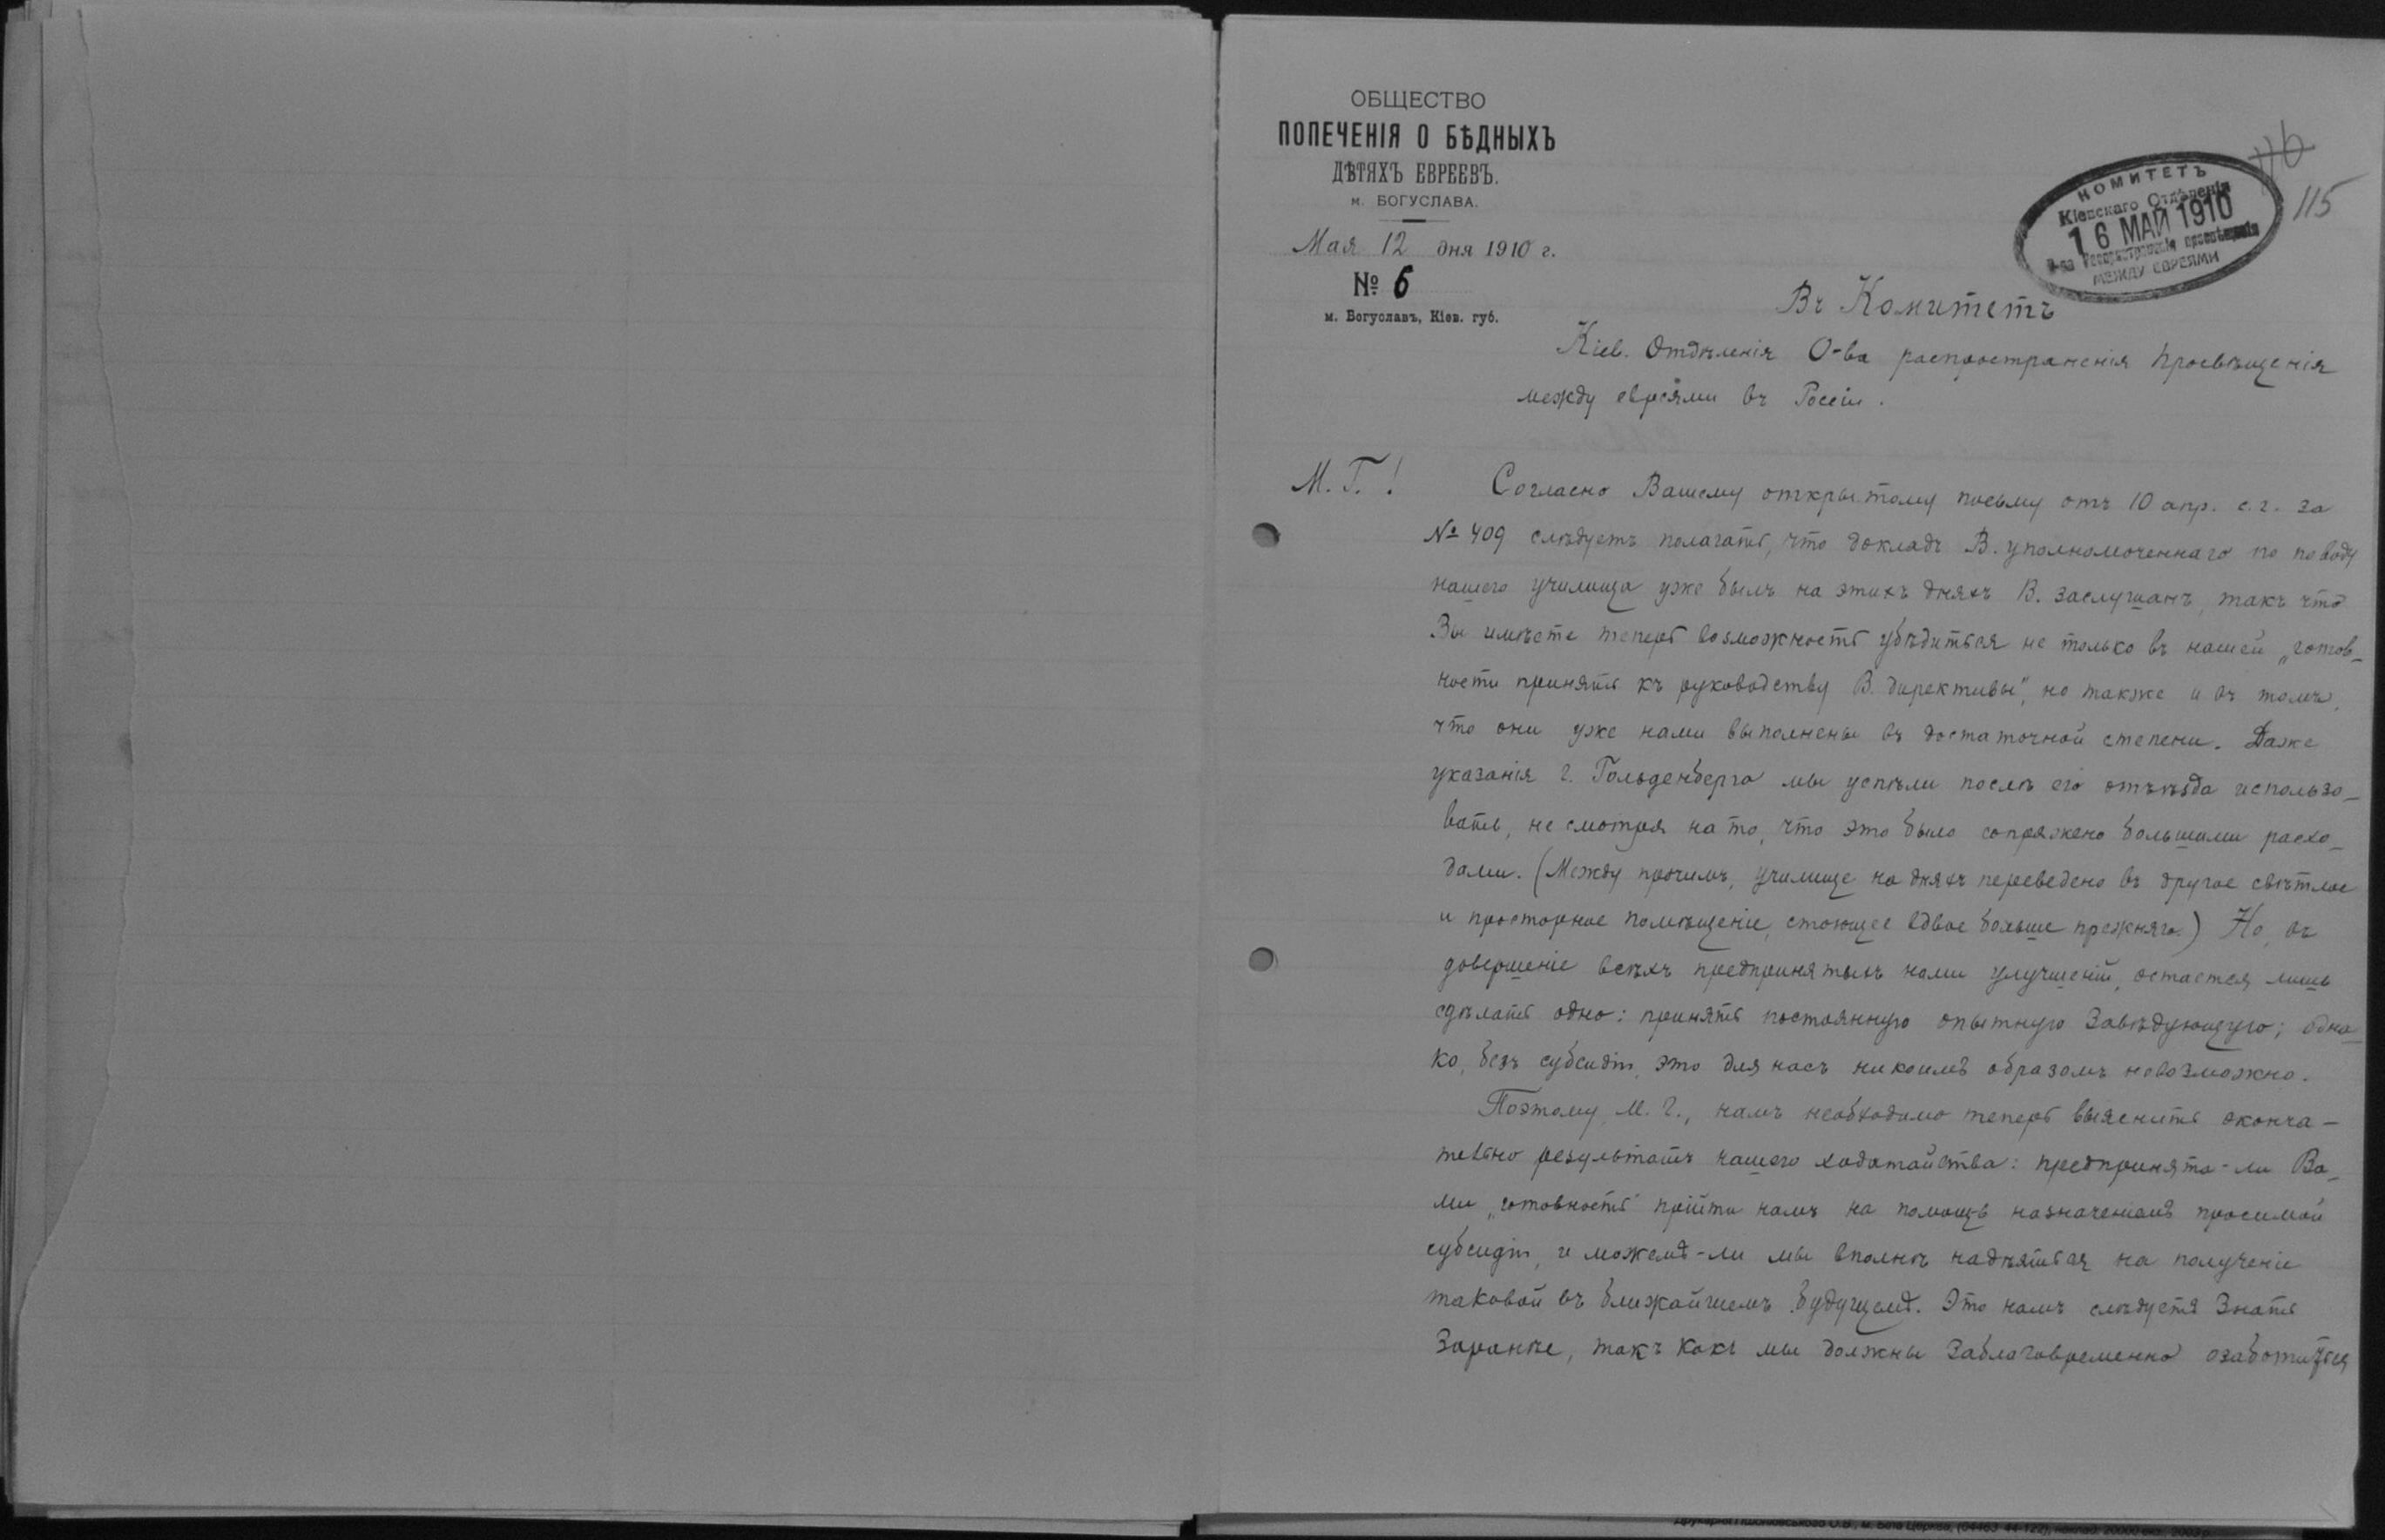 ОБЩЕСТВО
ПОПЕЧЕНІЯ О БѢДНЫХЪ
ДѢТЯХЪ ЕВРЕЕВЪ.
м. БОГУСЛАВА.
Мая 12 дня 1910 г.
№ 6
м. Богуславъ, Кіев. губ.
116
115
КОМИТЕТЪ
Кіевскаго Отдѣленія
16 МАЙ 1910
О-ва Распространенія просвѣщенія
МЕЖДУ ЕВРЕЯМИ
Въ Комитетъ
Кіев. Отдѣленія О-ва распространенія просвѣщенія
между евреями въ Россіи.
М. Г.! Согласно Вашему открытому письму отъ 10 апр. с. г. за
№ 409 слѣдуетъ полагать, что докладъ В. уполномоченнаго по поводу
нашего училища уже былъ на этихъ дняхъ В. заслушанъ, такъ что
Вы имѣете теперь возможность убѣдиться не только въ нашей „готов-
ности принять къ руководству В. директивы", но также и въ томъ,
что они уже нами выполнены въ достаточной степени. Даже
указанія г. Гольденберга мы успѣли послѣ его отъѣзда использо-
вать, не смотря на то, что это было сопряжено большими расхо-
дами. (Между прочимъ, училище на дняхъ переведено въ другое свѣтлое
и просторное помѣщеніе, стоющее вдвое больше прежняго.) Но, въ
довершеніе всѣхъ предпринятыхъ нами улучшеній, остается лишь
сдѣлать одно: принять постоянную опытную Завѣдующую; одна-
ко, безъ субсидіи, это для насъ никоимъ образомъ невозможно.
Поэтому, М. Г., намъ необходимо теперь выяснить оконча-
тельно результатъ нашего ходатайства: предпринята-ли Ва-
ми „готовность" прійти намъ на помощь назначеніемъ просимой
субсидіи, и можемъ-ли мы вполнѣ надѣяться на полученіе
таковой въ ближайшемъ будущемъ. Это намъ слѣдуетъ знать
Заранѣе, такъ какъ мы должны Заблаговременно озаботиться